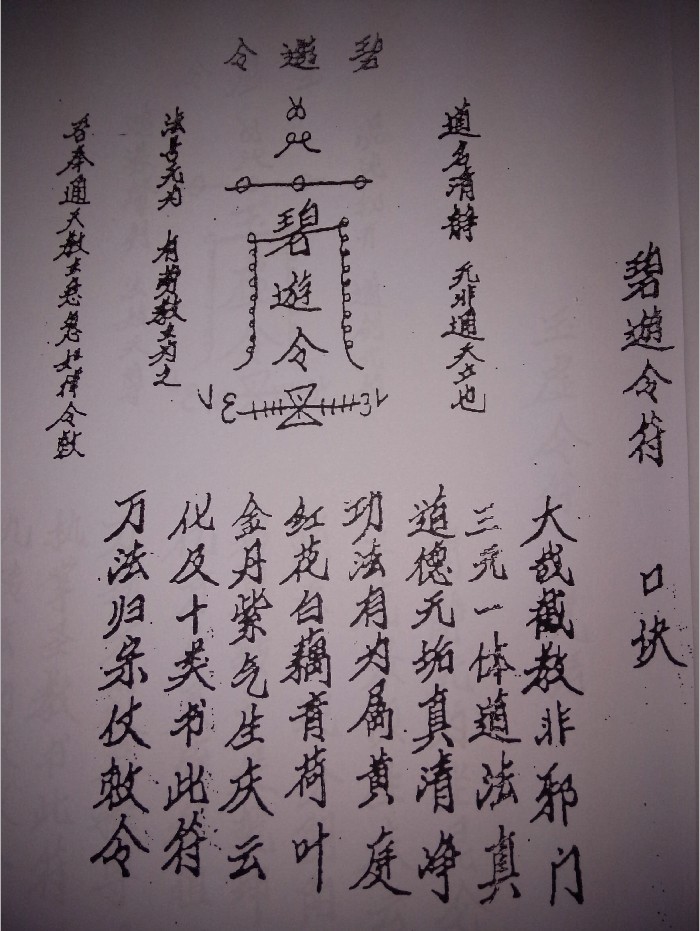 碧遊令符 口块
大哉截教非邪门
三元一体道法真
道德无垢真清净
功法有为属黄庭
红花白藕青荷叶
金丹紫气生庆云
化及十类书此符
万法归宗仗敕令
碧遊令
道名清静 无非通天之也
碧遊令
法号无为 有劳教主为之
吾奉通天教主急急如律令敕